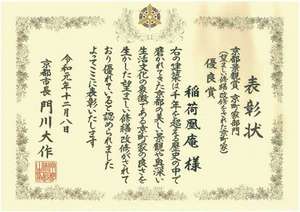 表彰状
京都景観賞 京町家部門
(望ましい修繕改修をされた町家)
優良賞
稲荷凰庵 様
右の建築は千年を超える歴史の中で
磨かれてきた京都の美しい景観や奥深い
生活文化の象徴である京町家の良さを
生かした望ましい修繕改修がされて
おり優れていると認められました
よってここに表彰いたします
令和元年十二月八日
京都市長 門川大作